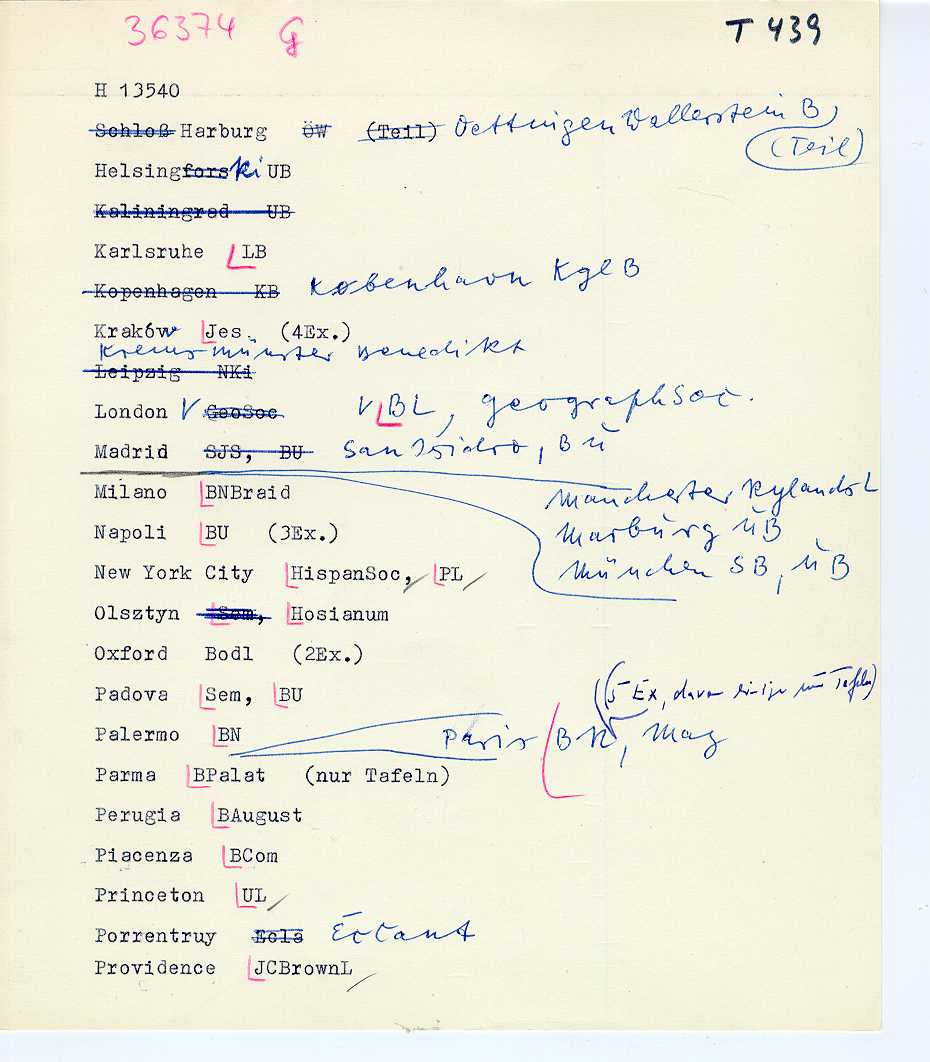 36374 G T 439
H 13540
Schloß Harburg ÖW (Teil) Oettingen Wallerstein B
(Teil)
Helsingforski UB
Kaliningrad UB
Karlsruhe LB
Kopenhagen KB København Kgl B
Kraków Jes. (4Ex.)
Kremsmünster Benedikt
Leipzig NKi
London V GeoSoc V BL, GeographSoc.
Madrid SJS, BU San Isidro, BU
Milano BNBraid
Manchester RylandsL
Napoli BU (3Ex.)
Marburg UB
New York City HispanSoc, PL
München SB, UB
Olsztyn Sem, Hosianum
Oxford Bodl (2Ex.)
Padova Sem, BU
(5 Ex, davon einige nur Tafeln)
Palermo BN
Paris BN, Maz
Parma BPalat (nur Tafeln)
Perugia BAugust
Piacenza BCom
Princeton UL
Porrentruy Ecla EcCant
Providence JCBrownL